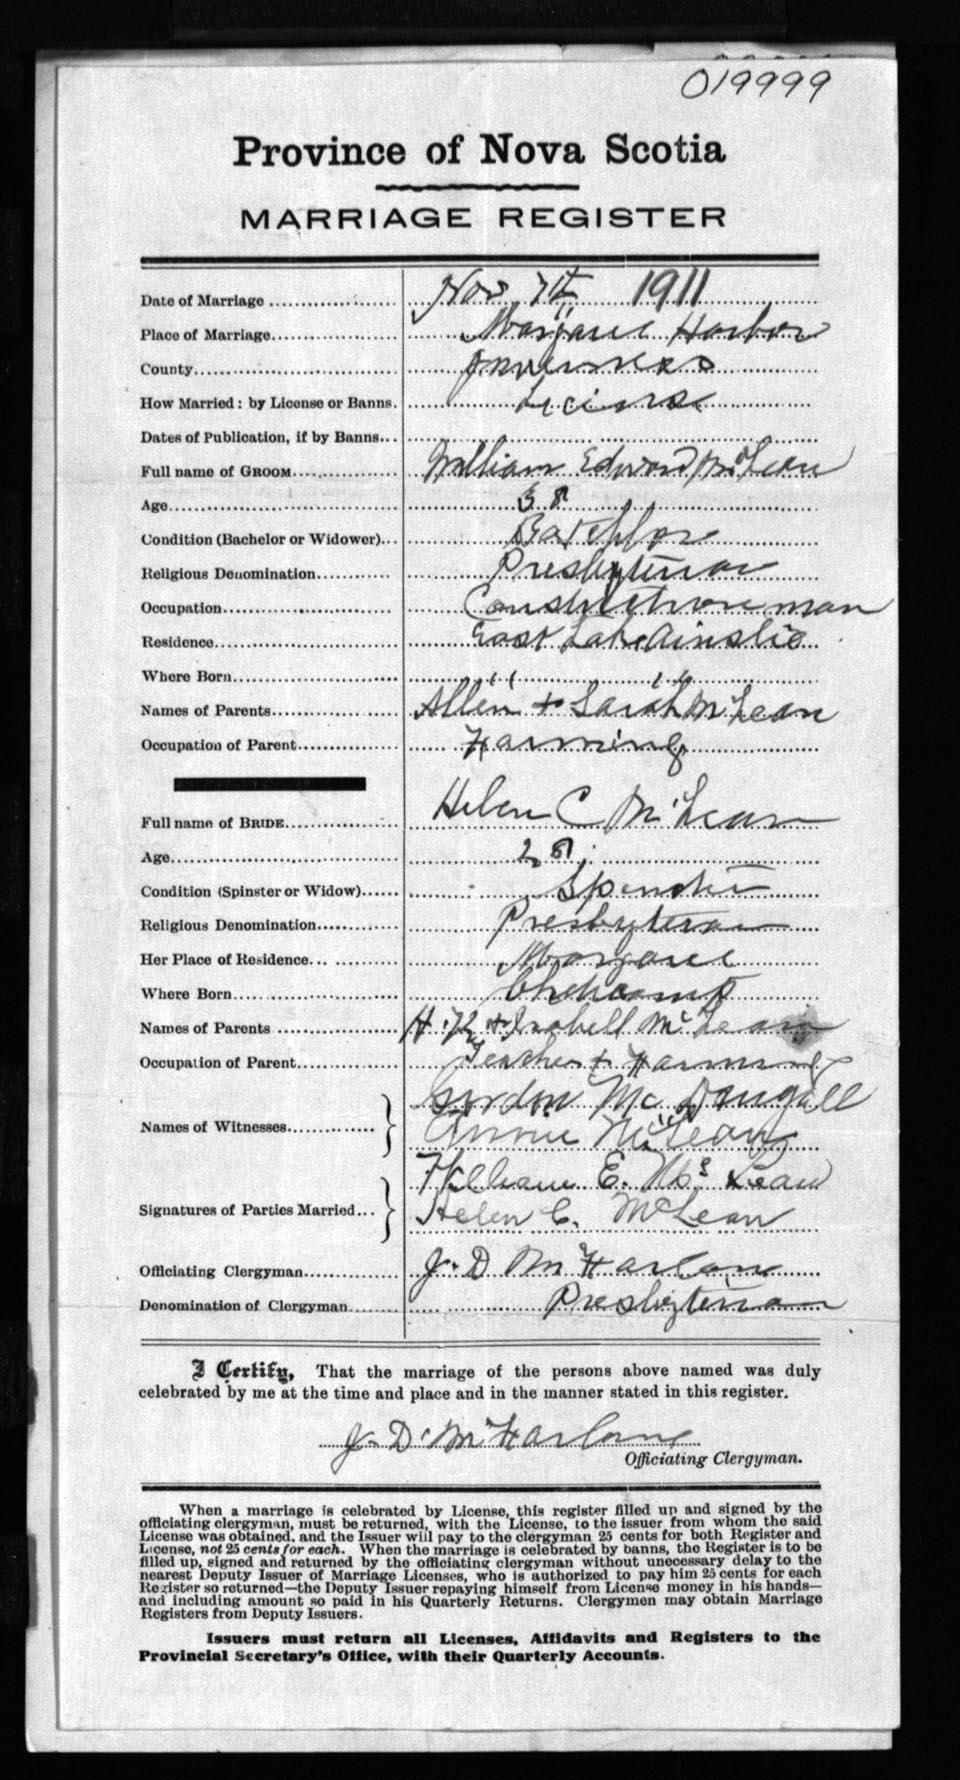 019999
Province of Nova Scotia
MARRIAGE REGISTER
Date of Marriage Nov 7th 1911
Place of Marriage Margaree Harbor
County Inverness
How Married: by License or Banns. License
Dates of Publication, if by Banns
Full name of GROOM William Edward McLean
Age 38
Condition (Bachelor or Widower) Batchlor
Religious Denomination Presbyterian
Occupation Construction man
Residence East Lake Ainslie
Where Born " "
Names of Parents Allen + Sarah McLean
Occupation of Parent Farming
Full name of BRIDE Helen C McLean
Age 28
Condition (Spinster or Widow) Spinster
Religious Denomination Presbyterian
Her Place of Residence Margaree
Where Born Cheticamp
Names of Parents H. + Isabell McLean
Occupation of Parent Teacher + Farming
Gordon McDougall
Names of Witnesses
Annie McLean
William E. McLean
Signatures of Parties Married
Helen C. McLean
Officiating Clergyman J. D McFarlane
Denomination of Clergyman Presbyterian
I Certify, That the marriage of the persons above named was duly
celebrated by me at the time and place and in the manner stated in this register.
J. D. McFarlane
Officiating Clergyman.
When a marriage is celebrated by License, this register filled up and signed by the
officiating clergyman, must be returned, with the License, to the issuer from whom the said
License was obtained, and the Issuer will pay to the clergyman 25 cents for both Register and
License, not 25 cents for each. When the marriage is celebrated by banns, the Register is to be
filled up, signed and returned by the officiating clergyman without unecessary delay to the
nearest Deputy Issuer of Marriage Licenses, who is authorized to pay him 25 cents for each
Register so returned—the Deputy Issuer repaying himself from License money in his hands—
and including amount so paid in his Quarterly Returns. Clergymen may obtain Marriage
Registers from Deputy Issuers.
Issuers must return all Licenses, Affidavits and Registers to the
Provincial Secretary's Office, with their Quarterly Accounts.